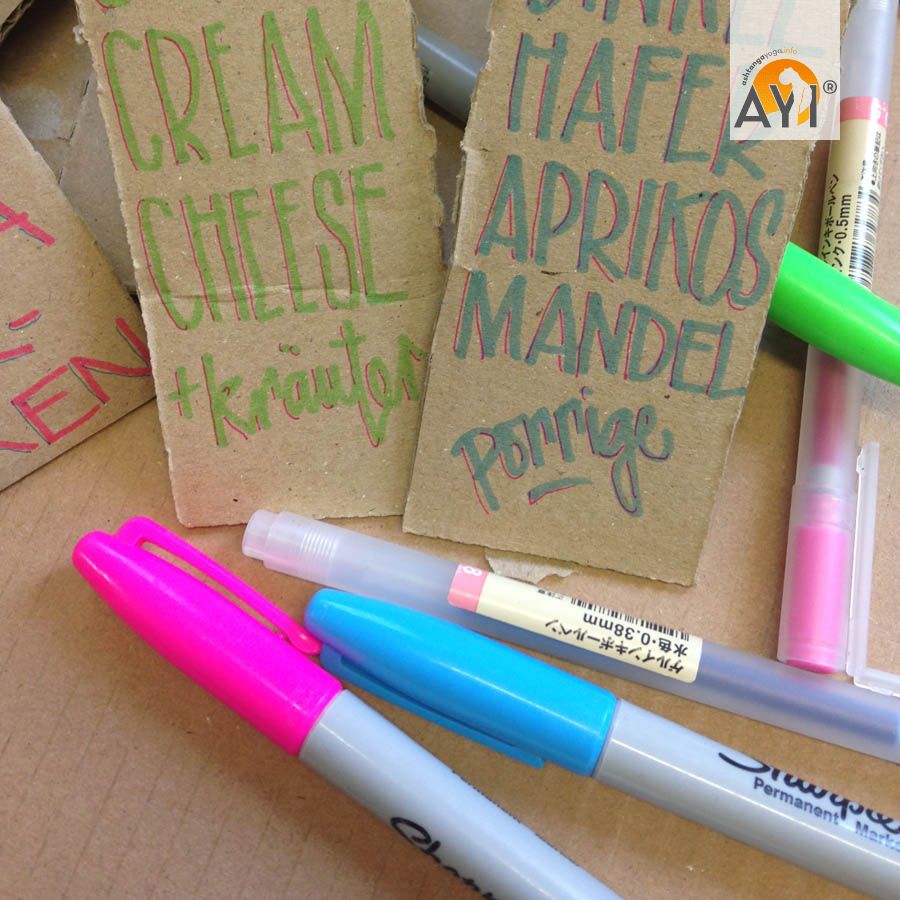 CREAM
CHEESE
+kräuter
HAFER
APRIKOS
MANDEL
Porrige
KEN
ashtangayoga.info
AYI®
ゲルインキボールペン
水色・0.38mm
インキボールペン
ンク・0.5mm
Sharpie
Permanent Marke
Sharp